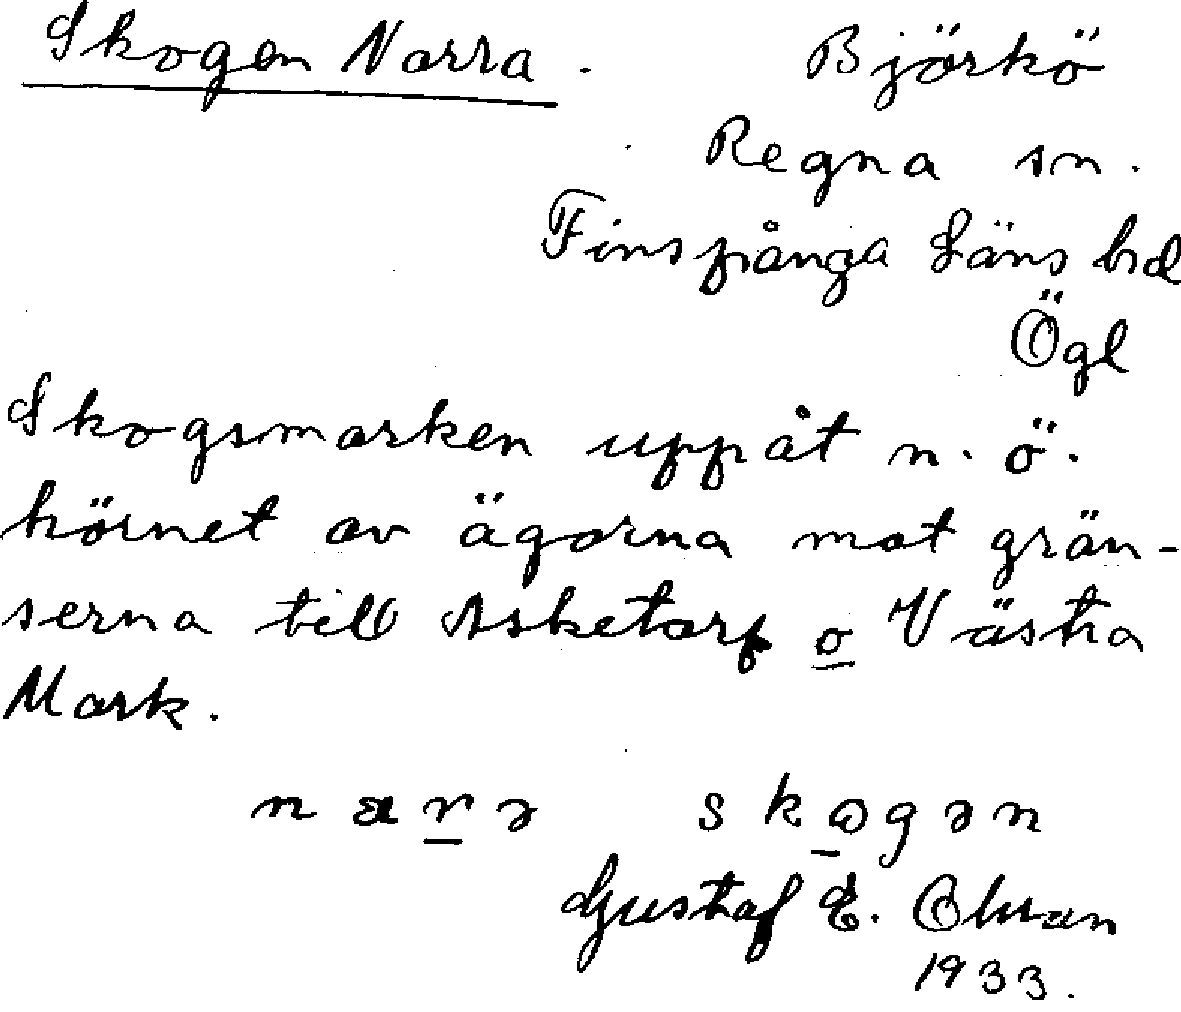 Skogen Norra.
Björkö
Regna sn.
Finspånga Läns hd
Ögl
Skogsmarken uppåt n.ö.
hörnet av ägorna mot grän-
serna till Asketorp o Västra
Mark.
skogən
Gustaf E.
1933.